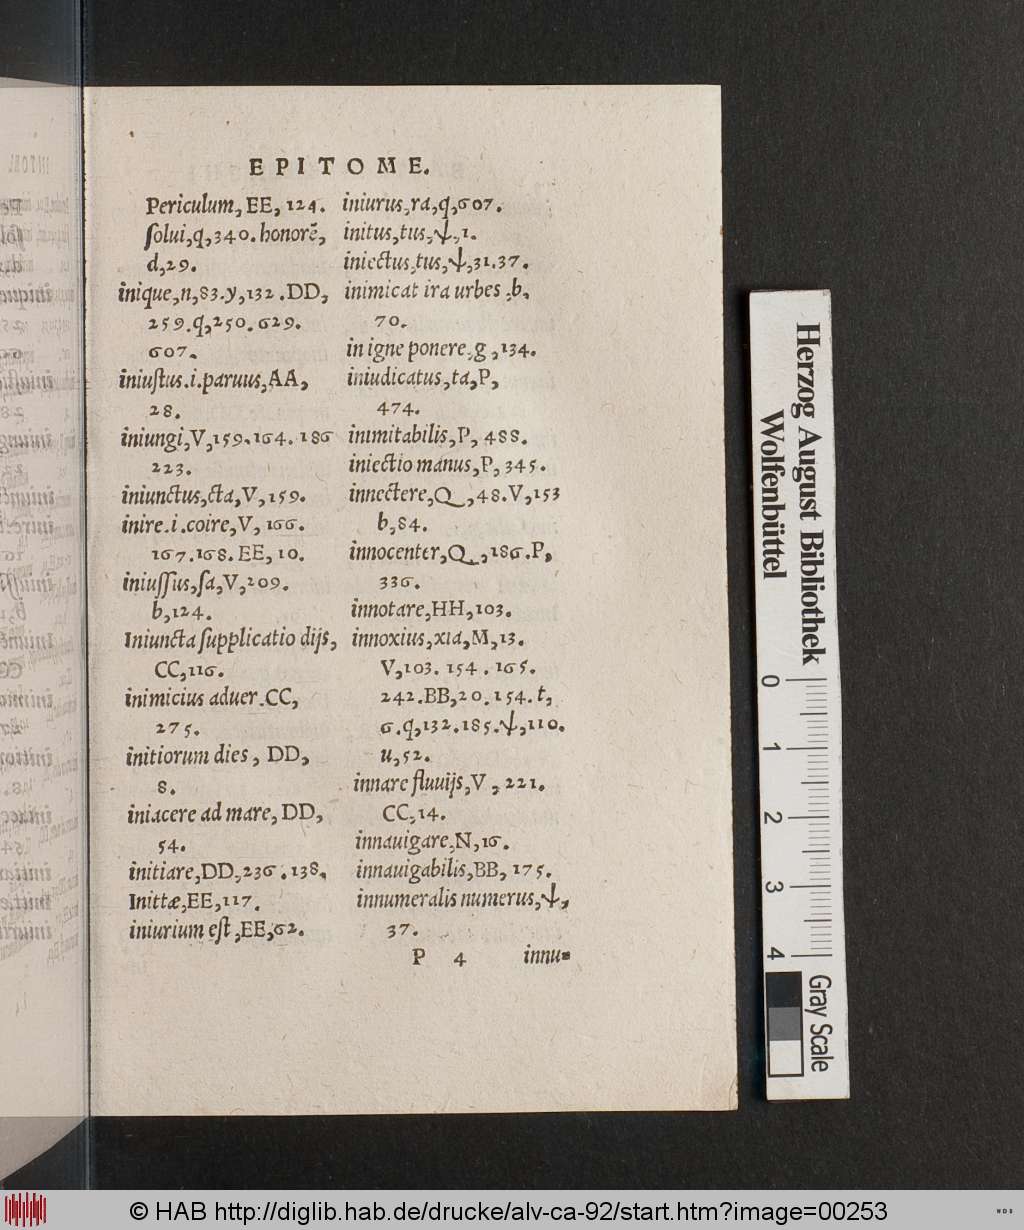 EPITOME.
Periculum, EE, 124.
ſolui, q, 340. honorē,
d, 29.
inique, n, 83. y, 132. DD,
259. q, 250. 629.
607.
iniuſtus. i. paruus, AA,
28.
iniungi, V, 159. 164. 186
223.
iniunctus, cta, V, 159.
inire. i. coire, V, 166.
167. 168. EE, 10.
iniuſſus, ſa, V, 209.
b, 124.
Iniuncta ſupplicatio dijs,
CC, 116.
inimicius aduer. CC,
275.
initiorum dies, DD,
8.
iniacere ad mare, DD,
54.
initiare, DD, 236. 138.
Inittæ, EE, 117.
iniurium eſt, EE, 62.
iniurus, ra, q, 607.
initus, tus, ѱ, 1.
iniectus, tus, ѱ, 31. 37.
inimicat ira urbes, b,
70.
in igne ponere, g, 134.
iniudicatus, ta, P,
474.
inimitabilis, P, 488.
iniectio manus, P, 345.
innectere, Q, 48. V, 153
b, 84.
innocenter, Q, 186. P,
336.
innotare, HH, 103.
innoxius, xia, M, 13.
V, 103. 154. 165.
242. BB, 20. 154. t,
6. q, 132. 185. ѱ, 110.
u, 52.
innare fluuijs, V, 221.
CC, 14.
innauigare, N, 16.
innauigabilis, BB, 175.
innumeralis numerus, ѱ,
37.
P 4 innu=
Herzog August Bibliothek
Wolfenbüttel
0 1 2 3 4
Gray Scale
© HAB http://diglib.hab.de/drucke/alv-ca-92/start.htm?image=00253